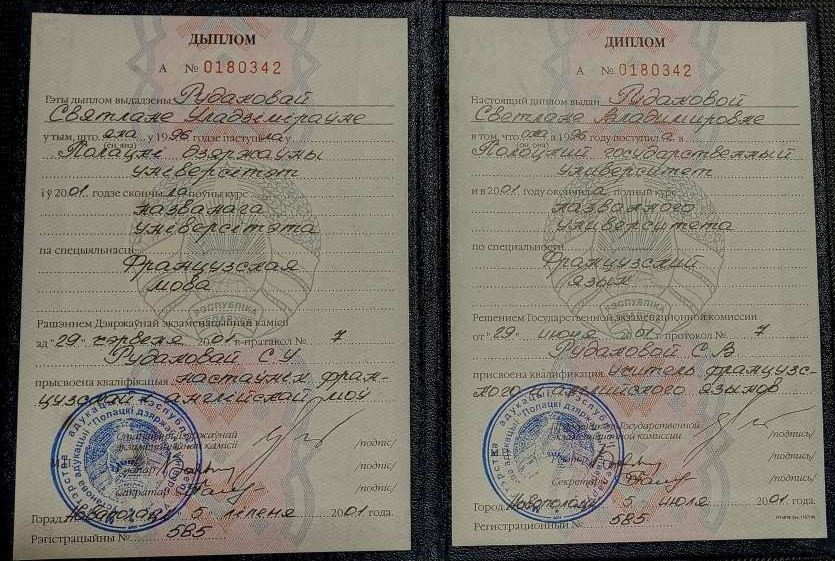 ДЫПЛОМ
А № 0180342
Гэты дыплом выдадзены Рудановай
Святлане Уладзіміраўне
у тым, што яна у 1996 годзе паступіла ў
(ён, яна)
Полацкі дзяржаўны
універсітэт
і ў 2001 годзе скончыла поўны курс
названага
універсітэта
па спецыяльнасці
Французская
мова
РЭСПУБЛІКА
Рашэннем Дзяржаўнай экзаменацыйнай камісіі
ад "29" чэрвеня 2001 г. пратакол № 7
Рудановай С.У
прысвоена кваліфікацыя настаўнік фран-
цузскай і англійскай моў
Старшыня Дзяржаўнай
экзаменацыйнай камісіі /подпіс/
Рэктар /подпіс/
Сакратар /подпіс/
Горад Наваполацк 5 ліпеня 2001 года.
Рэгістрацыйны № 585
ДИПЛОМ
А № 0180342
Настоящий диплом выдан Рудановой
Светлане Владимировне
в том, что она в 1996 году поступила в
(он, она)
Полоцкий государственный
университет
и в 2001 году окончила полный курс
названного
университета
по специальности
Французский
язык
РЭСПУБЛІКА
Решением Государственной экзаменационной комиссии
от "29" июня 2001 г. протокол № 7
Рудановой С.В
присвоена квалификация учитель французс-
кого и английского языков
Государственной
экзаменационной комиссии /подпись/
/подпись/
Секретарь /подпись/
Город Новополоцк 5 июля 2001 года.
Регистрационный № 585